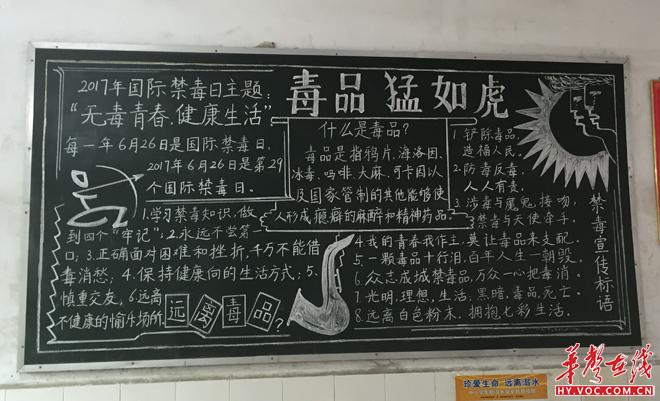 2017年国际禁毒日主题:
“无毒青春,健康生活”
每一年6月26日是国际禁毒日,
2017年6月26日是第29
个国际禁毒日。
毒品猛如虎
什么是毒品?
毒品是指鸦片、海洛因、
冰毒、吗啡、大麻、可卡因以
及国家管制的其他能够使
人形成瘾癖的麻醉和精神药品。
1.学习禁毒知识,做
到四个“牢记”;2.永远不尝第一
口;3.正确面对困难和挫折,千万不能借
毒消愁;4.保持健康向的生活方式;5.
慎重交友,6.远离
不健康的愉乐场所。
远离毒品?
1.铲除毒品,
造福人民。
2.防毒反毒,
人人有责。
3.涉毒与魔鬼接吻,
禁毒与天使牵手。
4.我的青春我作主,莫让毒品来支配.
5.一颗毒品十行泪,百年人生一朝毁.
6.众志成城禁毒品,万众一心把毒消。
7.光明、理想、生活;黑暗、毒品、死亡.
8.远离白色粉末,拥抱七彩生活。
禁毒宣传标语
珍爱生命 远离溺水
华声在线
HY.VOC.COM.CN